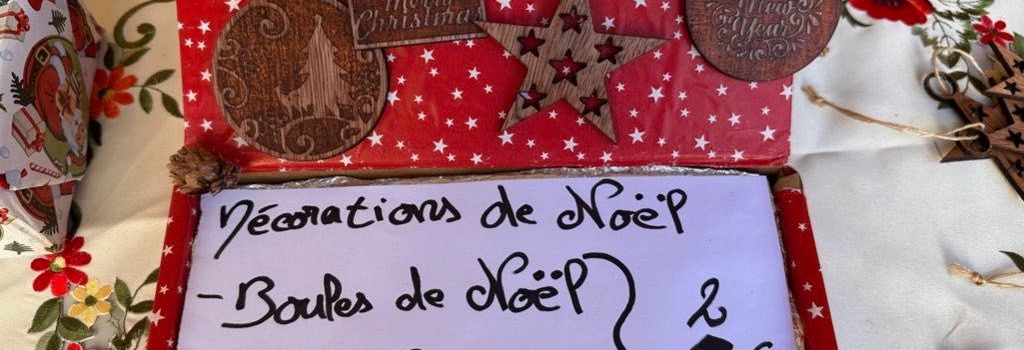 Merry
Christmas
New
Year
Décorations de Noël
- Boules de Noël
2